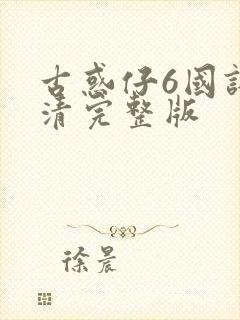 古惑仔6國
清完整版
徐晨